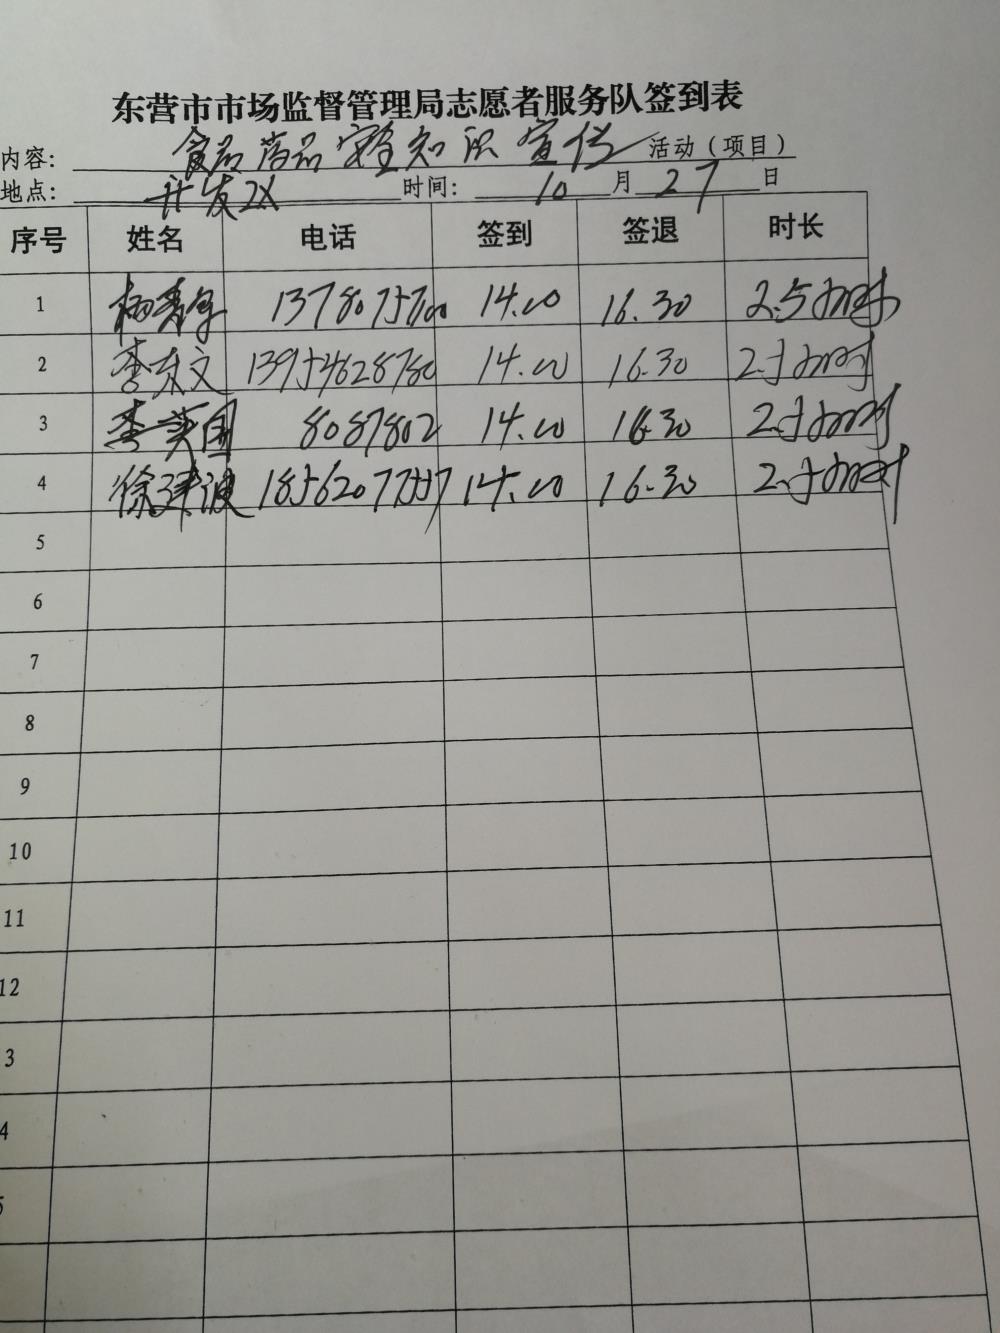 东营市市场监督管理局志愿者服务队签到表
内容： 食品药品安全知识宣传 活动（项目）
地点： 开发区 时间： 10 月 27 日
序号 姓名 电话 签到 签退 时长
1 14.00 16.30 2.5小时
2 李东文 13954628780 14.00 16.30 2.5小时
3 李英国 8087802 14.00 16.30 2.5小时
4 徐建波 14.00 16.30 2.5小时
5
6
7
8
9
10
11
12
3
4
5